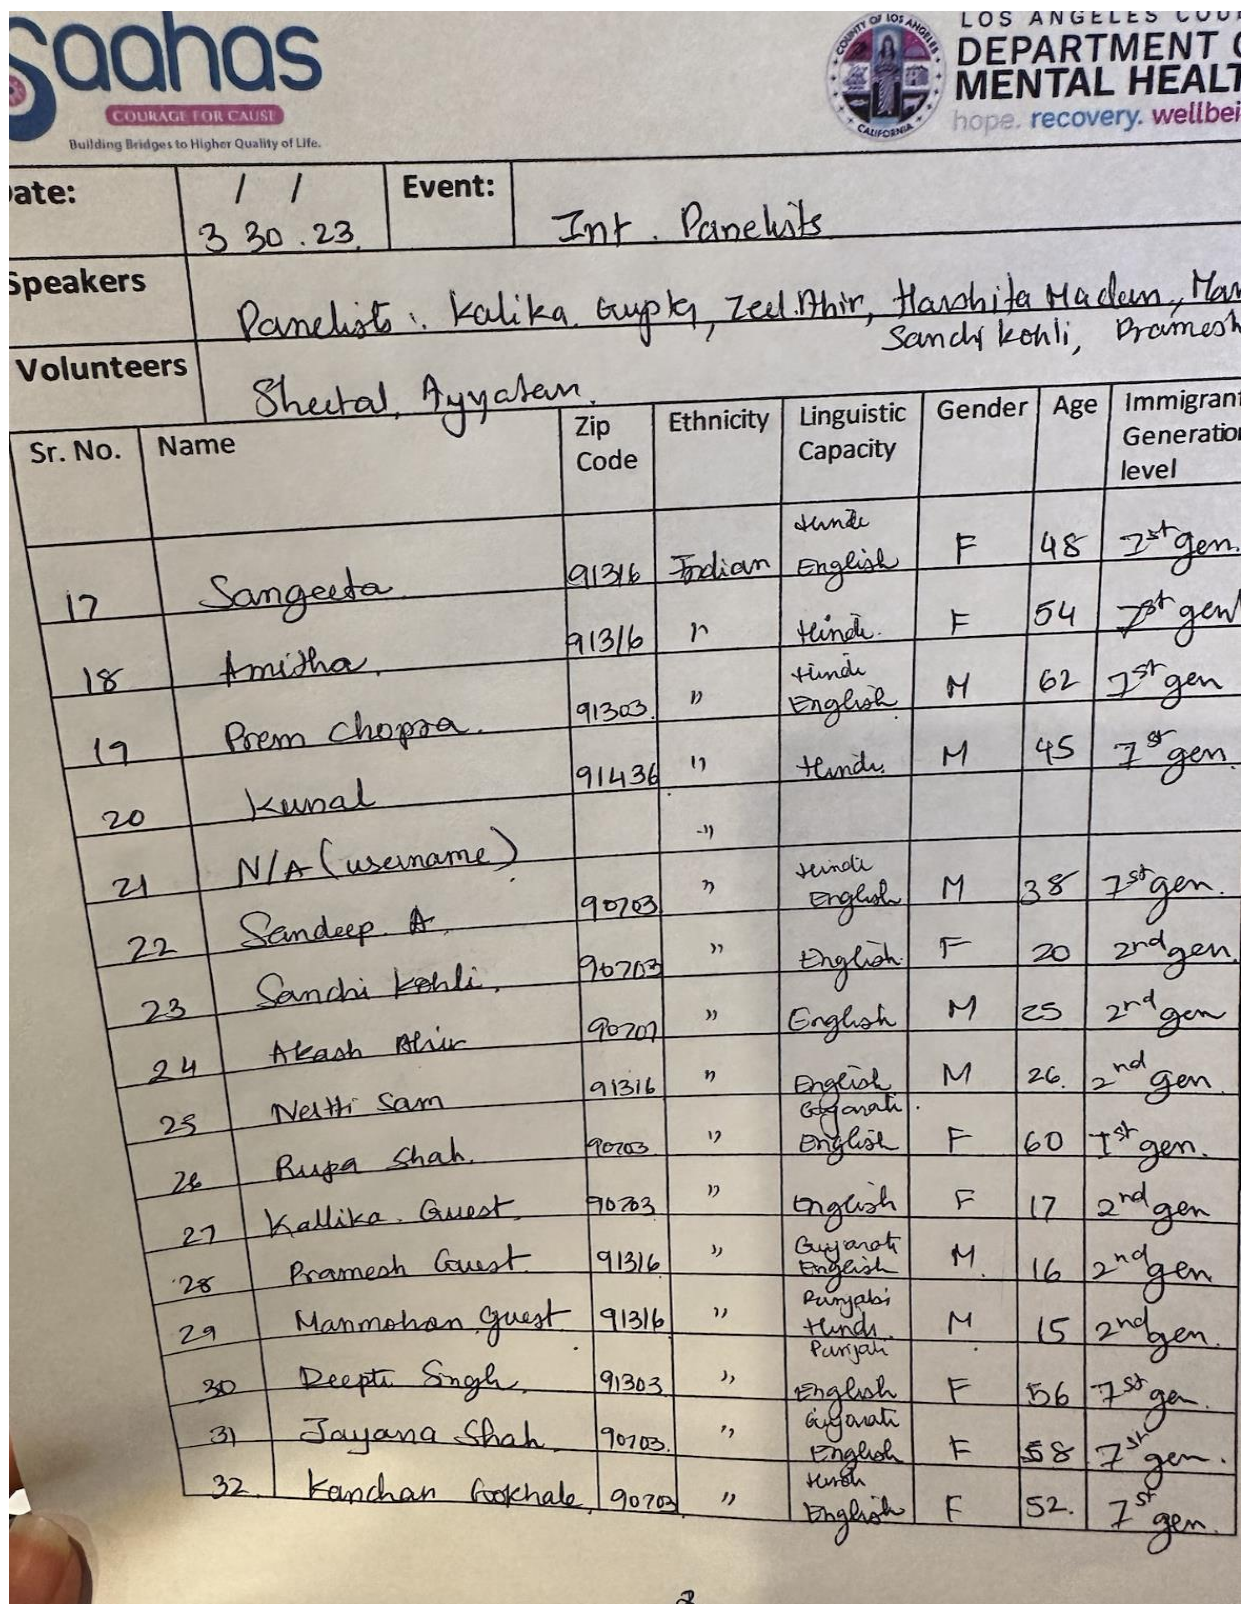 Saahas
COURAGE FOR CAUSE
Building Bridges to Higher Quality of Life.
COUNTY OF LOS ANGELES
CALIFORNIA
LOS ANGELES COU
DEPARTMENT O
MENTAL HEALT
hope. recovery. wellbei
ate: / / 3 30 . 23. Event: Int. Panelists
Speakers Panelists: Kalika Gupta, Zeel Ahir, Harshita Madan, Man
Sanchi Kohli, Pramesh
Volunteers Sheetal, Ayyasan.
Sr. No. Name Zip Code Ethnicity Linguistic Capacity Gender Age Immigrant Generation level
17 Sangeeta 91316 Indian Hindi English F 48 1st gen.
18 Amitha. 91316 " Hindi. F 54 1st gen
19 Prem Chopra. 91303. " Hindi English M 62 1st gen
20 Kunal 91436 " Hindi. M 45 1st gen.
21 N/A (username) "
22 Sandeep A. 90703 " Hindi English M 38 1st gen.
23 Sanchi Kohli. 90703 " English. F 20 2nd gen.
24 Akash Ahir " English M 25 2nd gen
25 Sam 91316 " English M 26. 2nd gen
26 Rupa Shah. 90703 " Gujarati English F 60 1st gen.
27 Kallika. Guest. 90703 " English F 17 2nd gen
28 Pramesh Guest. 91316 " Gujarati English M. 16 2nd gen
29 Manmohan Guest 91316 " Punjabi Hindi. M 15 2nd gen.
30 Deepti Singh. 91303 " Punjabi English F 56 1st gen.
31 Jayana Shah. 90703. " Gujarati English F 58 1st gen.
32. Kanchan Gookhale 90703 " Hindi English F 52. 1st gen.
2